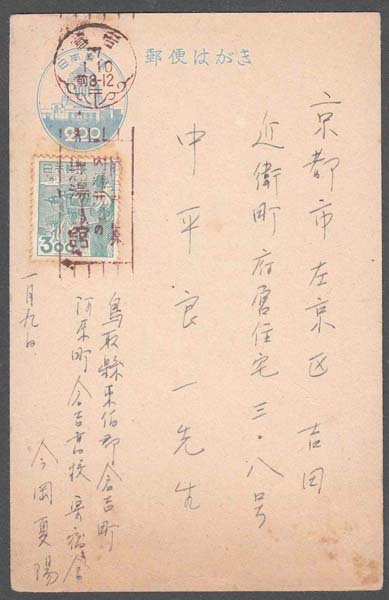 郵便はがき
倉吉
1.10
前8-12
日本郵便
2.00
日本郵便
3.00
京都市左京区吉田
近衛町府官住宅三・八号
中平良一先生
鳥取縣東伯郡倉吉町
倉吉高校寄宿舎
今岡夏陽
一月九日